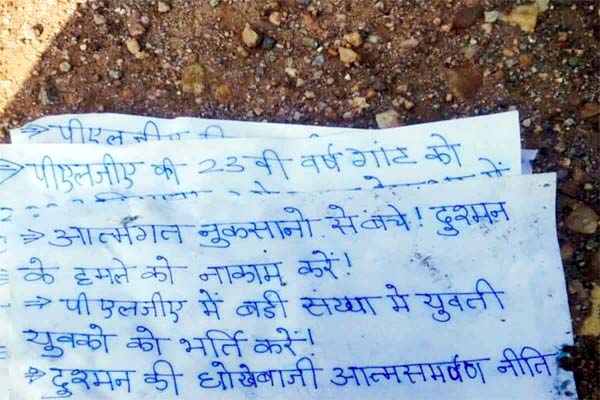 ⇒ पीएलजीए की
⇒ पीएलजीए की 23 वी वर्ष गांट को
⇒ आत्मगत नुकसानो से बचे! दुश्मन
के हमले को नाकाम करें!
⇒ पीएलजीए में बडी संख्या मे युवती
युवको को भर्ति करें!
⇒ दुश्मन की धोखेबाजी आत्मसमर्पण नीति